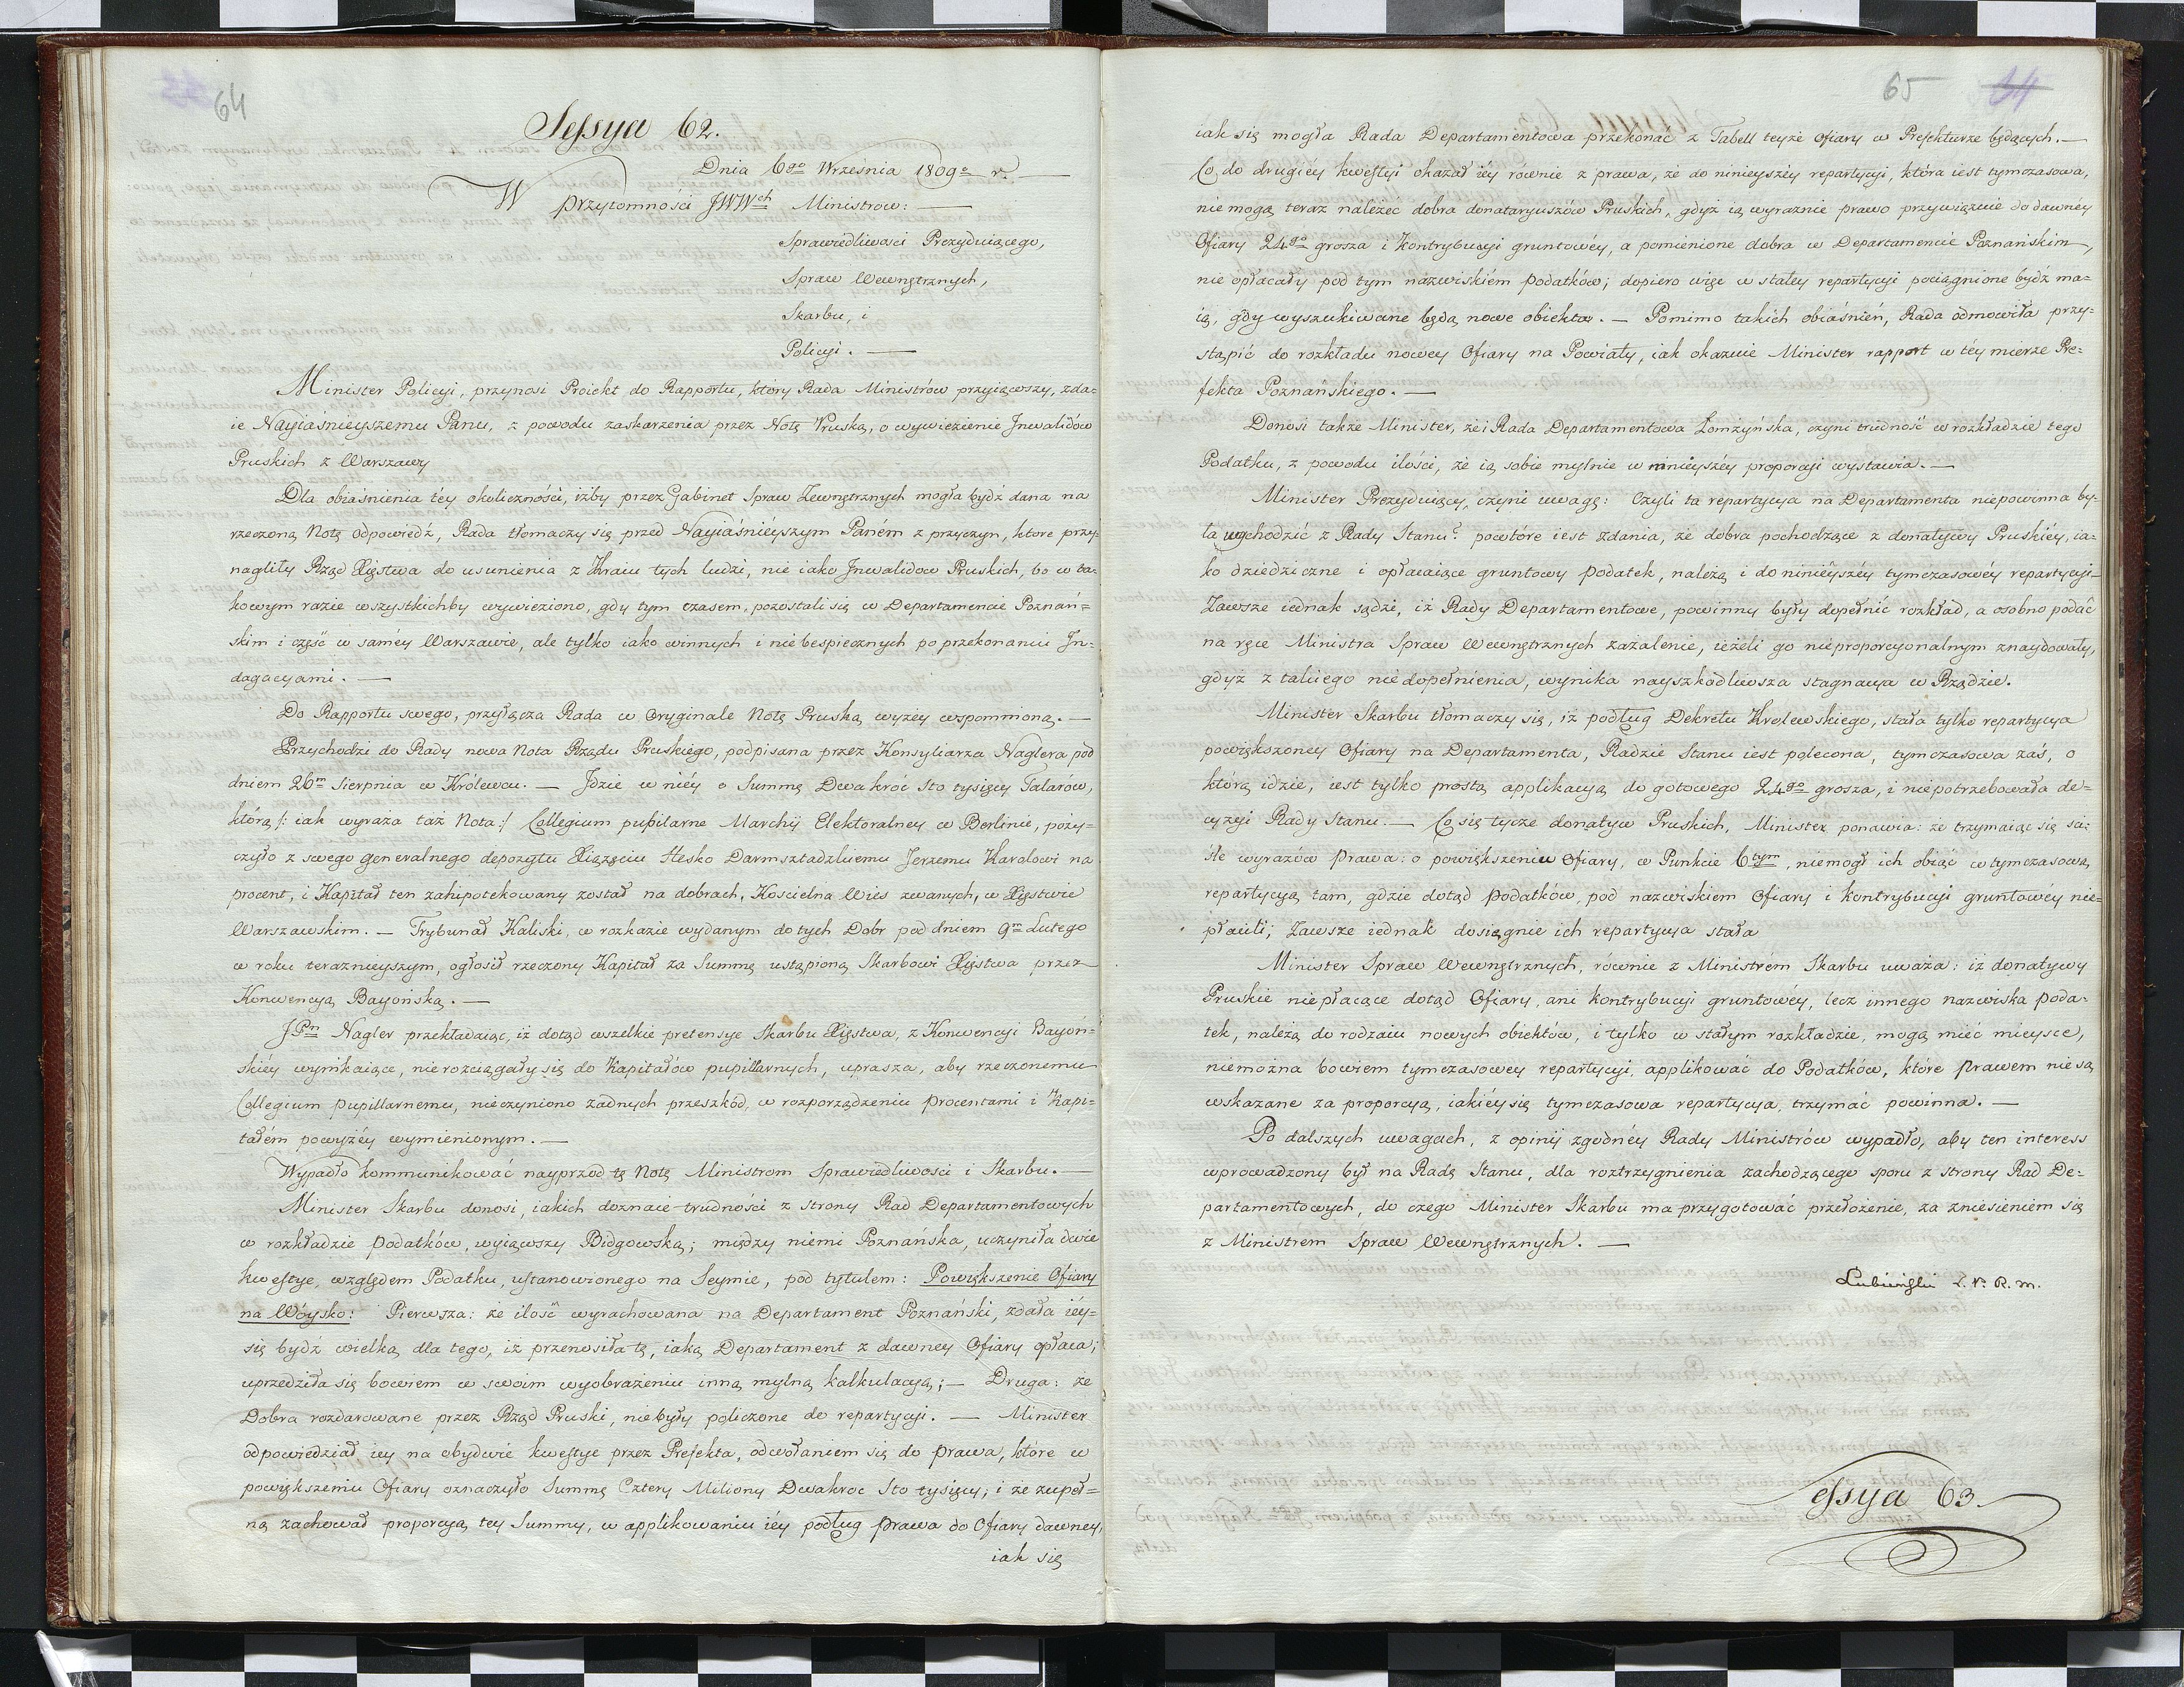 64
Sessya 62.
Dnia 6go Września 1809o r. —
W przytomności JWWch Ministrów: —
Sprawiedliwości Prezyduiącego,
Spraw Wewnętrznych,
Skarbu, i
Policyi. —
Minister Policyi, przynosi Proiekt do Rapportu, który Rada Ministrów przyiąwszy, zda=
ie Nayiaśnieyszemu Panu, z powodu zaskarżenia przez Notę Pruską, o wywiezienie Jnwalidów
Pruskich z Warszawy
Dla obiaśnienia téy okoliczności, iżby przez Gabinet Spraw Zewnętrznych mogła bydź dana na
rzeczoną Notę odpowiedź, Rada tłomaczy się przed Nayiaśniéyszym Paném z przyczyn, które przy=
nagliły Rząd Xięstwa do usunienia z Kraiu tych ludzi, nie iako Jnwalidow Pruskich, bo w ta=
kowym razie wszystkichby wywieziono, gdy tym czasem, pozostali się w Departamencie Poznań=
skim i część w saméy Warszawie, ale tylko iako winnych i niebespiecznych po przekonaniu Jn=
dagacyami. —
Do Rapportu swego, przyłącza Rada w Oryginale Notę Pruską wyżey wspomnioną. —
Przychodzi do Rady nowa Nota Rządu Pruskiego, podpisana przez Konsyliarza Naglera pod
dniem 26m Sierpnia w Królewcu. — Jdzie w niéy o Summę Dwakróć Sto tysięcy Talarów,
którą /: iak wyraża taż Nota :/ Collegium pupilarne Marchij Elektoralney w Berlinie, poży=
czyło z swego generalnego depozytu Xiążęciu Hesko Darmsztadzkiemu Jerzemu Karolowi na
procent, i Kapitał ten zahipotekowany został na dobrach, Koscielna Wieś zwanych, w Xięstwie
Warszawskim. — Trybunał Kaliski, w rozkazie wydanym do tych Dobr pod dniem 9m Lutego
w roku teraznieyszym, ogłosił rzeczony Kapitał za Summę ustąpioną Skarbowi Xięstwa przez
Konwencyą Bayońską. —
JPn Nagler przekładaiąc, iż dotąd wszelkie pretensye Skarbu Xięstwa, z Konwencyi Bayoń=
skiéy wynikaiące, nierozciągały się do Kapitałów pupillarnych, uprasza, aby rzeczonemu
Collegium pupillarnemu, nieczyniono żadnych przeszkód, w rozporządzeniu procentami i Kapi=
tałém powyżéy wymienionym. —
Wypadło kommunikować nayprzod tę Notę Ministrom Sprawiedliwości i Skarbu. —
Minister Skarbu donosi, iakich doznaie trudności z strony Rad Departamentowych
w rozkładzie Podatków, wyiąwszy Bidgowską; między niemi Poznańska, uczyniła dwie
kwestye, względem Podatku, ustanowionego na Seymie, pod tytulem: Powiększenie Ofiary
na Wóysko: Pierwsza: że ilość wyrachowana na Departament Poznański, zdała iéy=
się bydź wielką dla tego, iż przenosiła tę, iaką Departament z dawney Ofiary opłaca;
uprzedziła się bowiem w swoim wyobrażeniu inną mylną kalkulacyą; — Druga: że
Dobra rozdarowane przez Rząd Pruski, niebyły policzone do repartycyi. — Minister
odpowiedział iey na obydwie kwestye przez Prefekta, odwołaniem się do prawa, które w
powiększeniu Ofiary oznaczyło Summę Cztery Miliony Dwakroc Sto tysięcy; i że zupeł=
ną zachował proporcyą tey Summy, w applikowaniu iéy podług prawa do Ofiary dawney,
iak się
65
iak się mogła Rada Departamentowa przekonać z Tabell teyże Ofiary w Prefekturze będących. —
Co do drugiéy kwestyi okazał iéy równie z prawa, że do ninieyszéy repartycyi, która iest tymczasowa,
nie mogą teraz należeć dobra donataryuszów Pruskich, gdyż ią wyraźnie prawo przywięzuie do dawnéy
Ofiary 24go grosza i Kontrybucyi gruntowéy, a pomienione dobra w Departamencie Poznańskim,
nie opłacały pod tym nazwiskiém Podatków; dopiero więc w stałey repartycyi pociągnione bydź ma=
ią, gdy wyszukiwane będą nowe obiekta. — Pomimo takich obiaśnień, Rada odmowiła przy=
stąpić do rozkładu nowey Ofiary na Powiaty, iak okazuie Minister rapport w téy mierze Pre=
fekta Poznańskiego. —
Donosi także Minister, że i Rada Departamentowa Łomżyńska, czyni trudność w rozkładzie tego
Podatku, z powodu ilości, że ią sobie mylnie w ninieyszéy proporcyi wystawia. —
Minister Prezyduiący, czyni uwagę: Czyli ta repartycya na Departamenta niepowinna by=
ła wychodzić z Rady Stanu? powtóre iest zdania, że dobra pochodzące z donatywy Pruskiéy, ia=
ko dziedziczne i opłacaiące gruntowy Podatek, należą i do ninieyszéy tymczasowéy repartycyi
Zawsze iednak sądzi, iż Rady Departamentowe, powinny były dopełnić rozkład, a osobno podać
na ręce Ministra Spraw Wewnętrznych zażalenie, ieżeli go nieproporcyonalnym znaydowały,
gdyż z takiego niedopełnienia, wynika nayszkodliwsza stagnacya w Rządzie.
Minister Skarbu tłomaczy się, iż podług Dekretu Krolewskiego, stała tylko repartycya
powiększoney Ofiary na Departamenta, Radzie Stanu iest polecona, tymczasowa zaś, o
którą idzie, iest tylko prostą applikacyą do gotowego 24go grosza, i niepotrzebowała de=
cyzyi Rady Stanu. — Co się tycze donatyw Pruskich, Minister ponawia: że trzymaiąc się ści=
śle wyrazów Prawa: o powiększeniu Ofiary, w Punkcie 6tym, niemogł ich obiąć w tymczasową
repartycyą tam, gdzie dotąd Podatków, pod nazwiskiem Ofiary i Kontrybucyi gruntowéy nie=
płacili; Zawsze iednak dosięgnie ich repartycya stała
Minister Spraw Wewnętrznych, równie z Ministrém Skarbu uważa: iż donatywy
Pruskie niepłacące dotąd Ofiary, ani Kontrybucyi gruntowéy, lecz innego nazwiska Poda=
tek, należą do rodzaiu nowych obiektów, i tylko w stałym rozkładzie, mogą mieć mieysce,
niemożna bowiem tymczasowey repartycyi, applikować do Podatków, które Prawem nie są
wskazane za proporcyą, iakiéy się tymczasowa repartycya, trzymać powinna. —
Po dalszych uwagach, z opinij zgodnéy Rady Ministrów wypadło, aby ten interess
wprowadzony był na Radę Stanu, dla roztrzygnienia zachodzącego sporu z strony Rad De=
partamentowych, do czego Minister Skarbu ma przygotować przełożenie, za zniesieniem się
z Ministrem Spraw Wewnętrznych. —
Lubieński
Sessya 63.